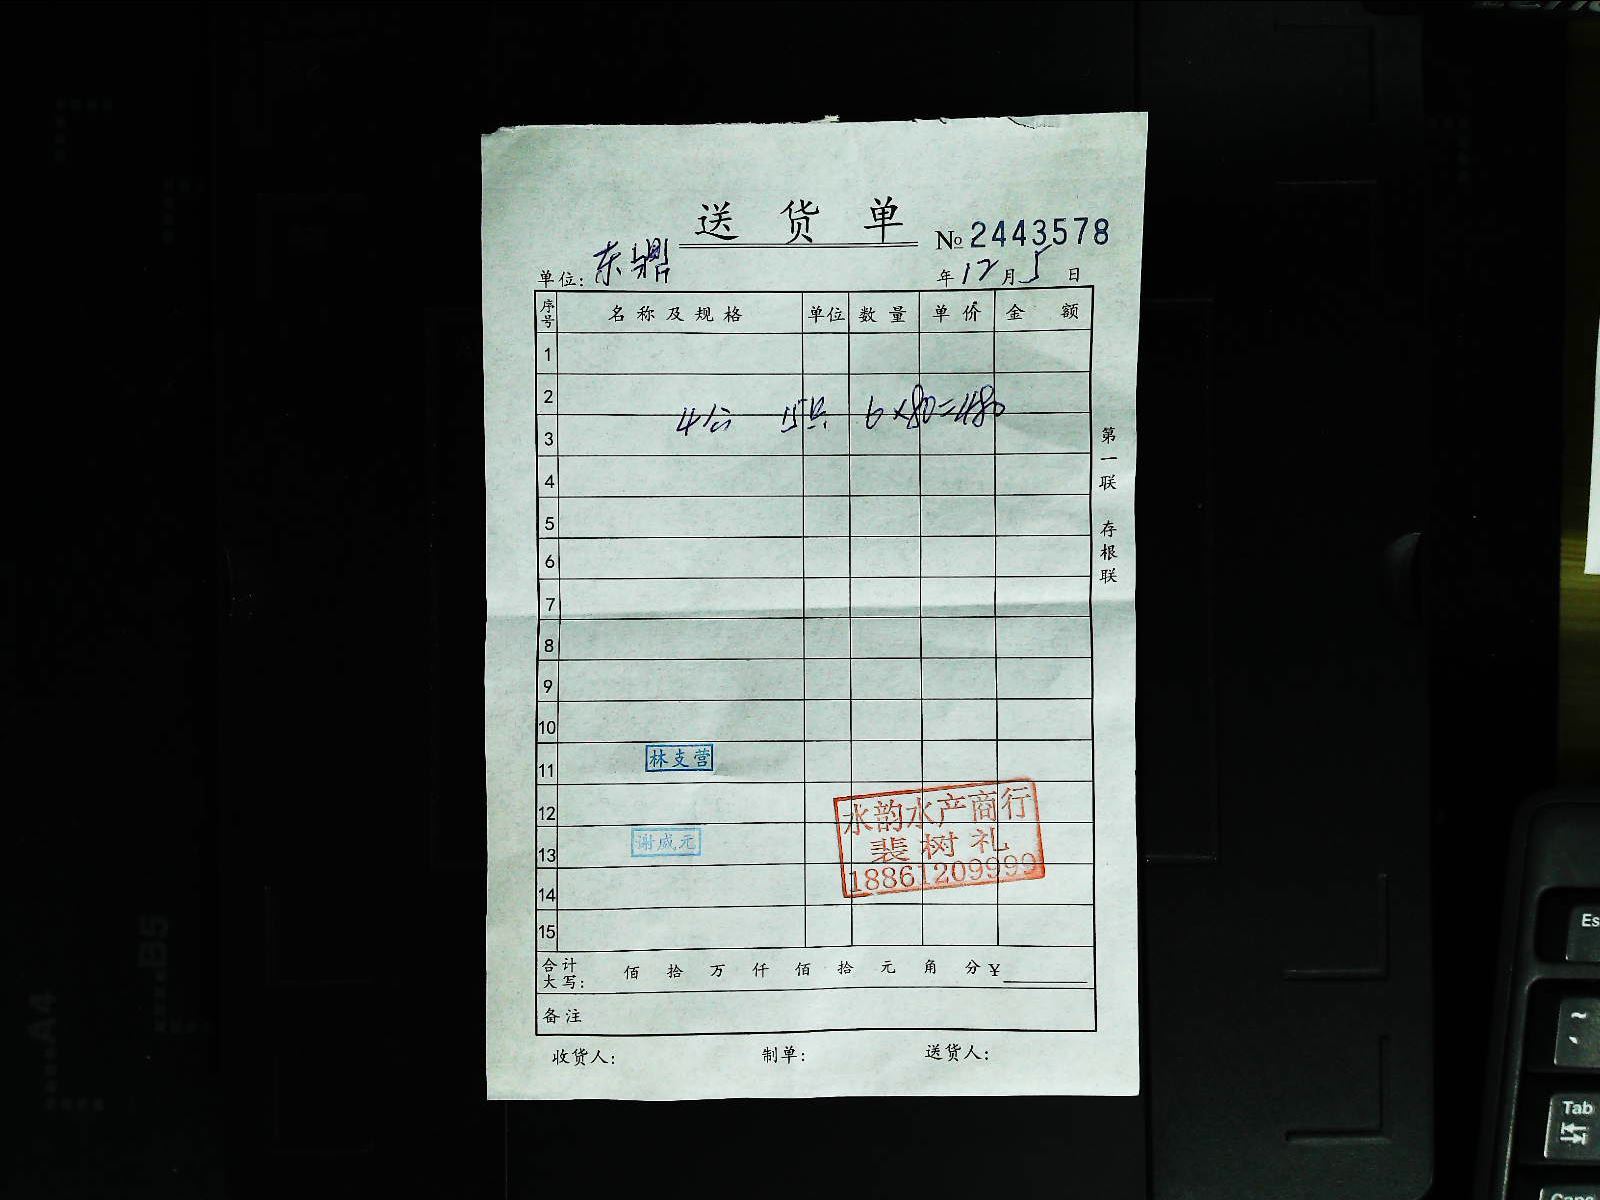 送货单
№2443578
单位: 东鼎
年12月5日
序号 名称及规格 单位 数量 单价 金额
1
2
4公 15只 6×80=480
3
4
5
6
7
8
9
10
林支营
11
水韵水产商行
12
谢威元
裴树礼
13
18861209999
14
15
合计大写: 佰 拾 万 仟 佰 拾 元 角 分 ¥
备注
收货人: 制单: 送货人:
第一联 存根联
A4
B5
Es
~
Tab
Caps